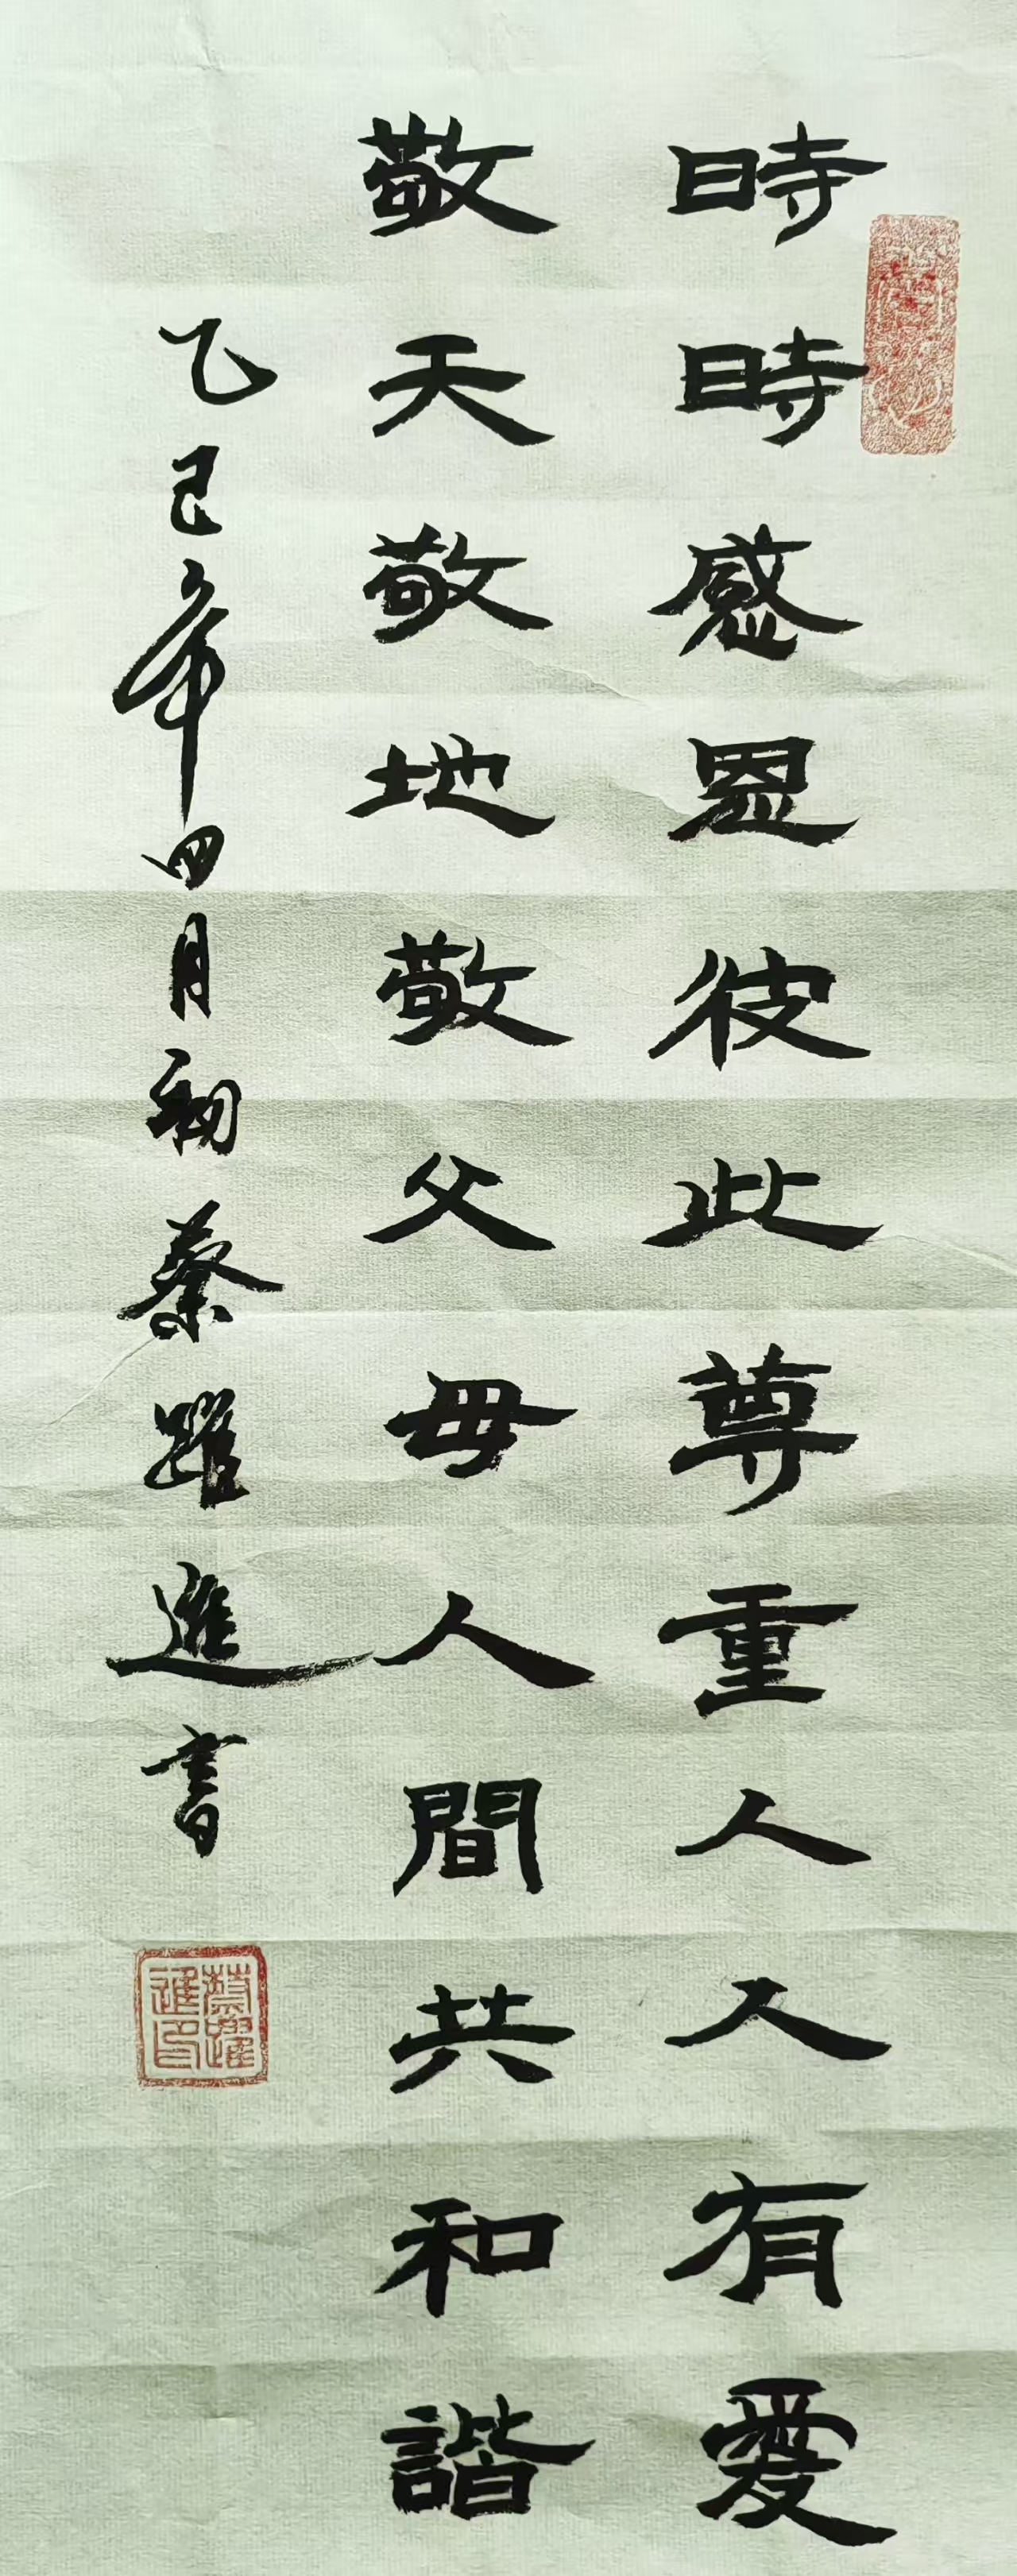 時時感恩彼此尊重人人有愛
敬天敬地敬父母人間共和諧
乙巳年四月初蔡躍進書
蔡躍進印